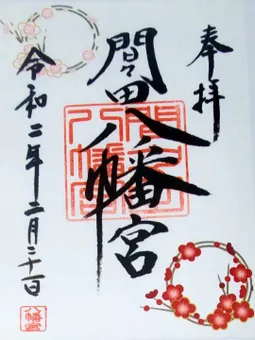 奉拝
間々田八幡宮
令和二年二月二十一日
間々田八幡宮
八幡宮